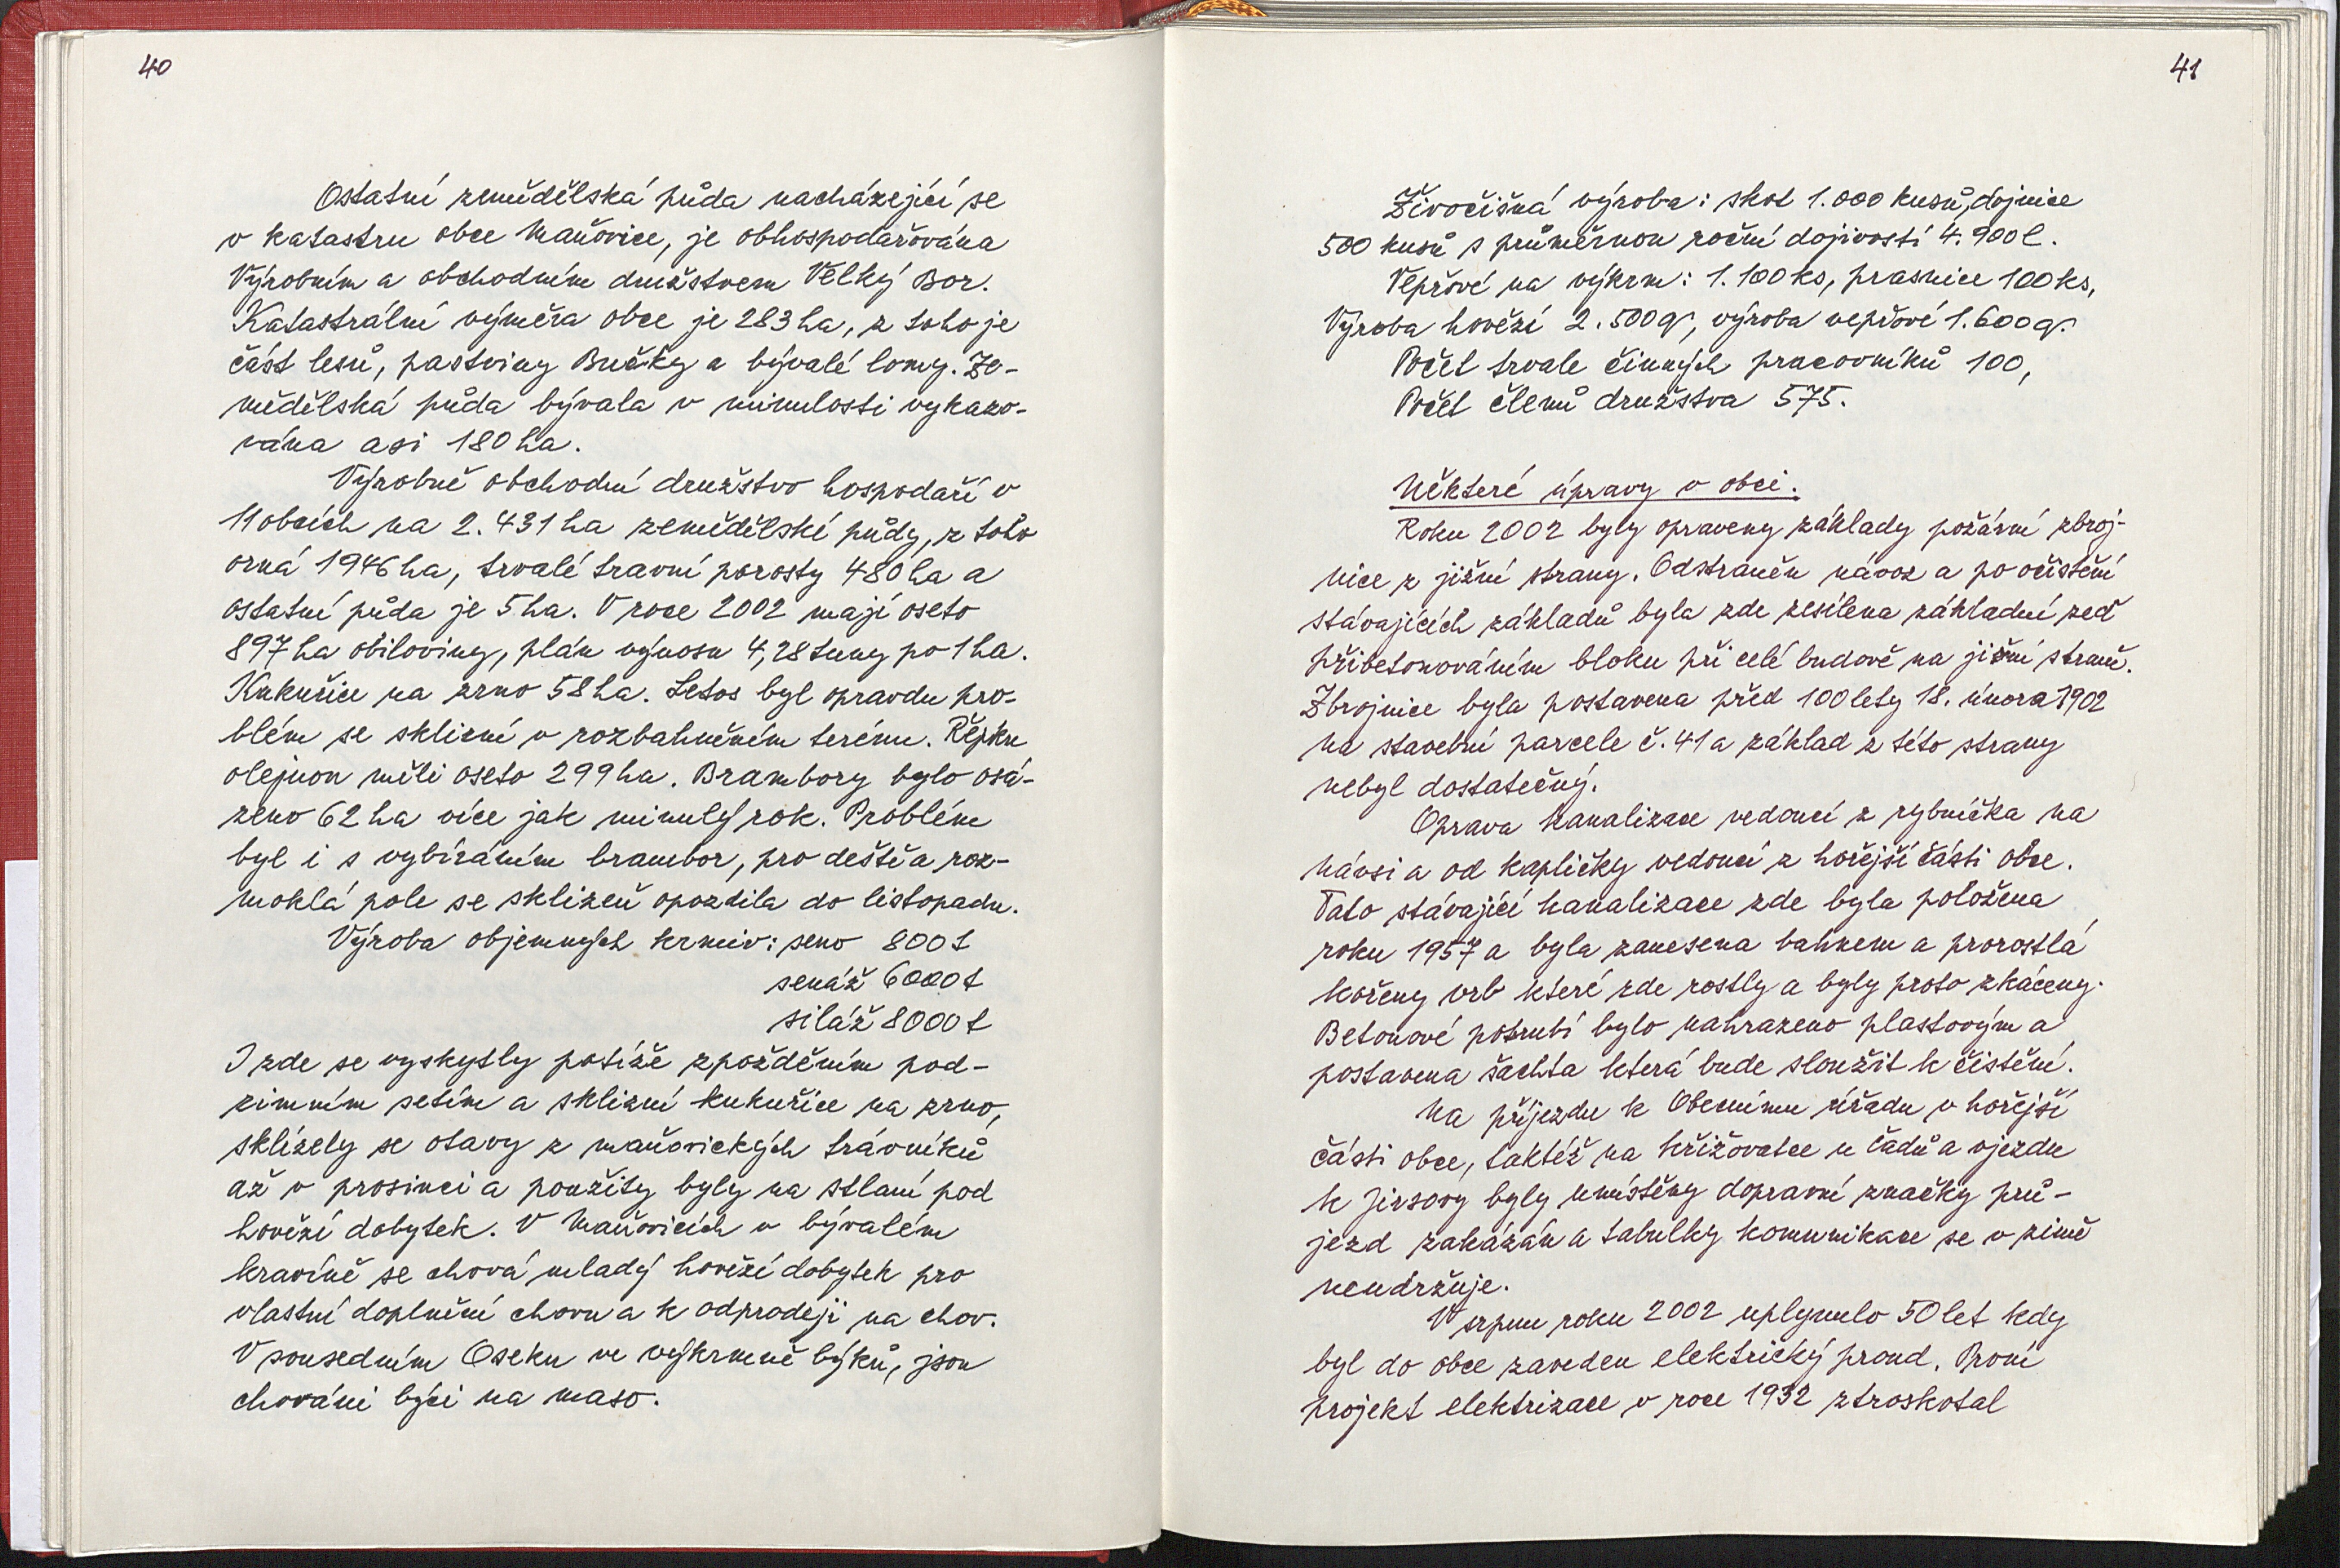 40
Ostatní zemědělská půda nacházející se
v katastru obce Maňovice, je obhospodařována
Výrobním a obchodním družstvem Velký Bor.
Katastrální výměra obce je 283 ha, z toho je
část lesů, pastviny Bučky a bývalé lomy. Ze-
mědělská půda bývala v minulosti vykazo-
vána asi 180 ha.
Výrobně obchodní družstvo hospodaří v
11 obcích na 2.431 ha zemědělské půdy, z toho
orná 1946 ha, trvalé travní porosty 480 ha a
ostatní půda je 5 ha. V roce 2002 mají oseto
897 ha obiloviny, plán výnosu 4,28 tuny po 1 ha.
Kukuřice na zrno 58 ha. Letos byl opravdu pro-
blém se sklizní v rozbahněném terénu. Řepku
olejnou měli oseto 299 ha. Brambory bylo osá-
zeno 62 ha více jak minulý rok. Problém
byl i s vybíráním brambor, pro deště a roz-
moklá pole se sklizeň opozdila do listopadu.
Výroba objemných krmiv: seno 800 t
senáž 6000 t
siláž 8000 t
I zde se vyskytly potíže zpožděním pod-
zimním setím a sklizní kukuřice na zrno,
sklízely se otavy z maňovických trávníků
až v prosinci a použity byly na stlaní pod
hovězí dobytek. V Maňovicích v bývalém
kravíně se chová mladý hovězí dobytek pro
vlastní doplnění chovu a k odprodeji na chov.
V sousedním Oseku ve výkrmně býků, jsou
chováni býci na maso.
41
Živočišná výroba: skot 1.000 kusů, dojnice
500 kusů s průměrnou roční dojivostí 4.900 l.
Vepřové na výkrm: 1.100 ks, prasnice 100 ks,
Výroba hovězí 2.500 q, výroba vepřové 1.600 q.
Počet trvale činných pracovníků 100,
Počet členů družstva 575.
Některé úpravy v obci.
Roku 2002 byly opraveny základy požární zbroj-
nice z jižní strany. Odstraněn návoz a po očistění
stávajících základů byla zde zesílena základní zeď
přibetonováním bloku při celé budově na jižní straně.
Zbrojnice byla postavena před 100 lety 18. února 1902
na stavební parcele č. 41 a základ z této strany
nebyl dostatečný.
Oprava kanalizace vedoucí z rybníčka na
návsi a od kapličky vedoucí z hořejší části obce.
Tato stávající kanalizace zde byla položena
roku 1957 a byla zanesena bahnem a prorostlá
kořeny vrb které zde rostly a byly proto zkáceny.
Betonové potrubí bylo nahrazeno plastovým a
postavena šachta která bude sloužit k čistění.
Na příjezdu k Obecnímu úřadu v hořejší
části obce, taktéž na křižovatce u Čadů a vjezdu
k Jirsovy byly umístěny dopravní značky prů-
jezd zakázán a tabulky komunikace se v zimě
neudržuje.
V srpnu roku 2002 uplynulo 50 let kdy
byl do obce zaveden elektrický proud. První
projekt elektrizace v roce 1932 ztroskotal